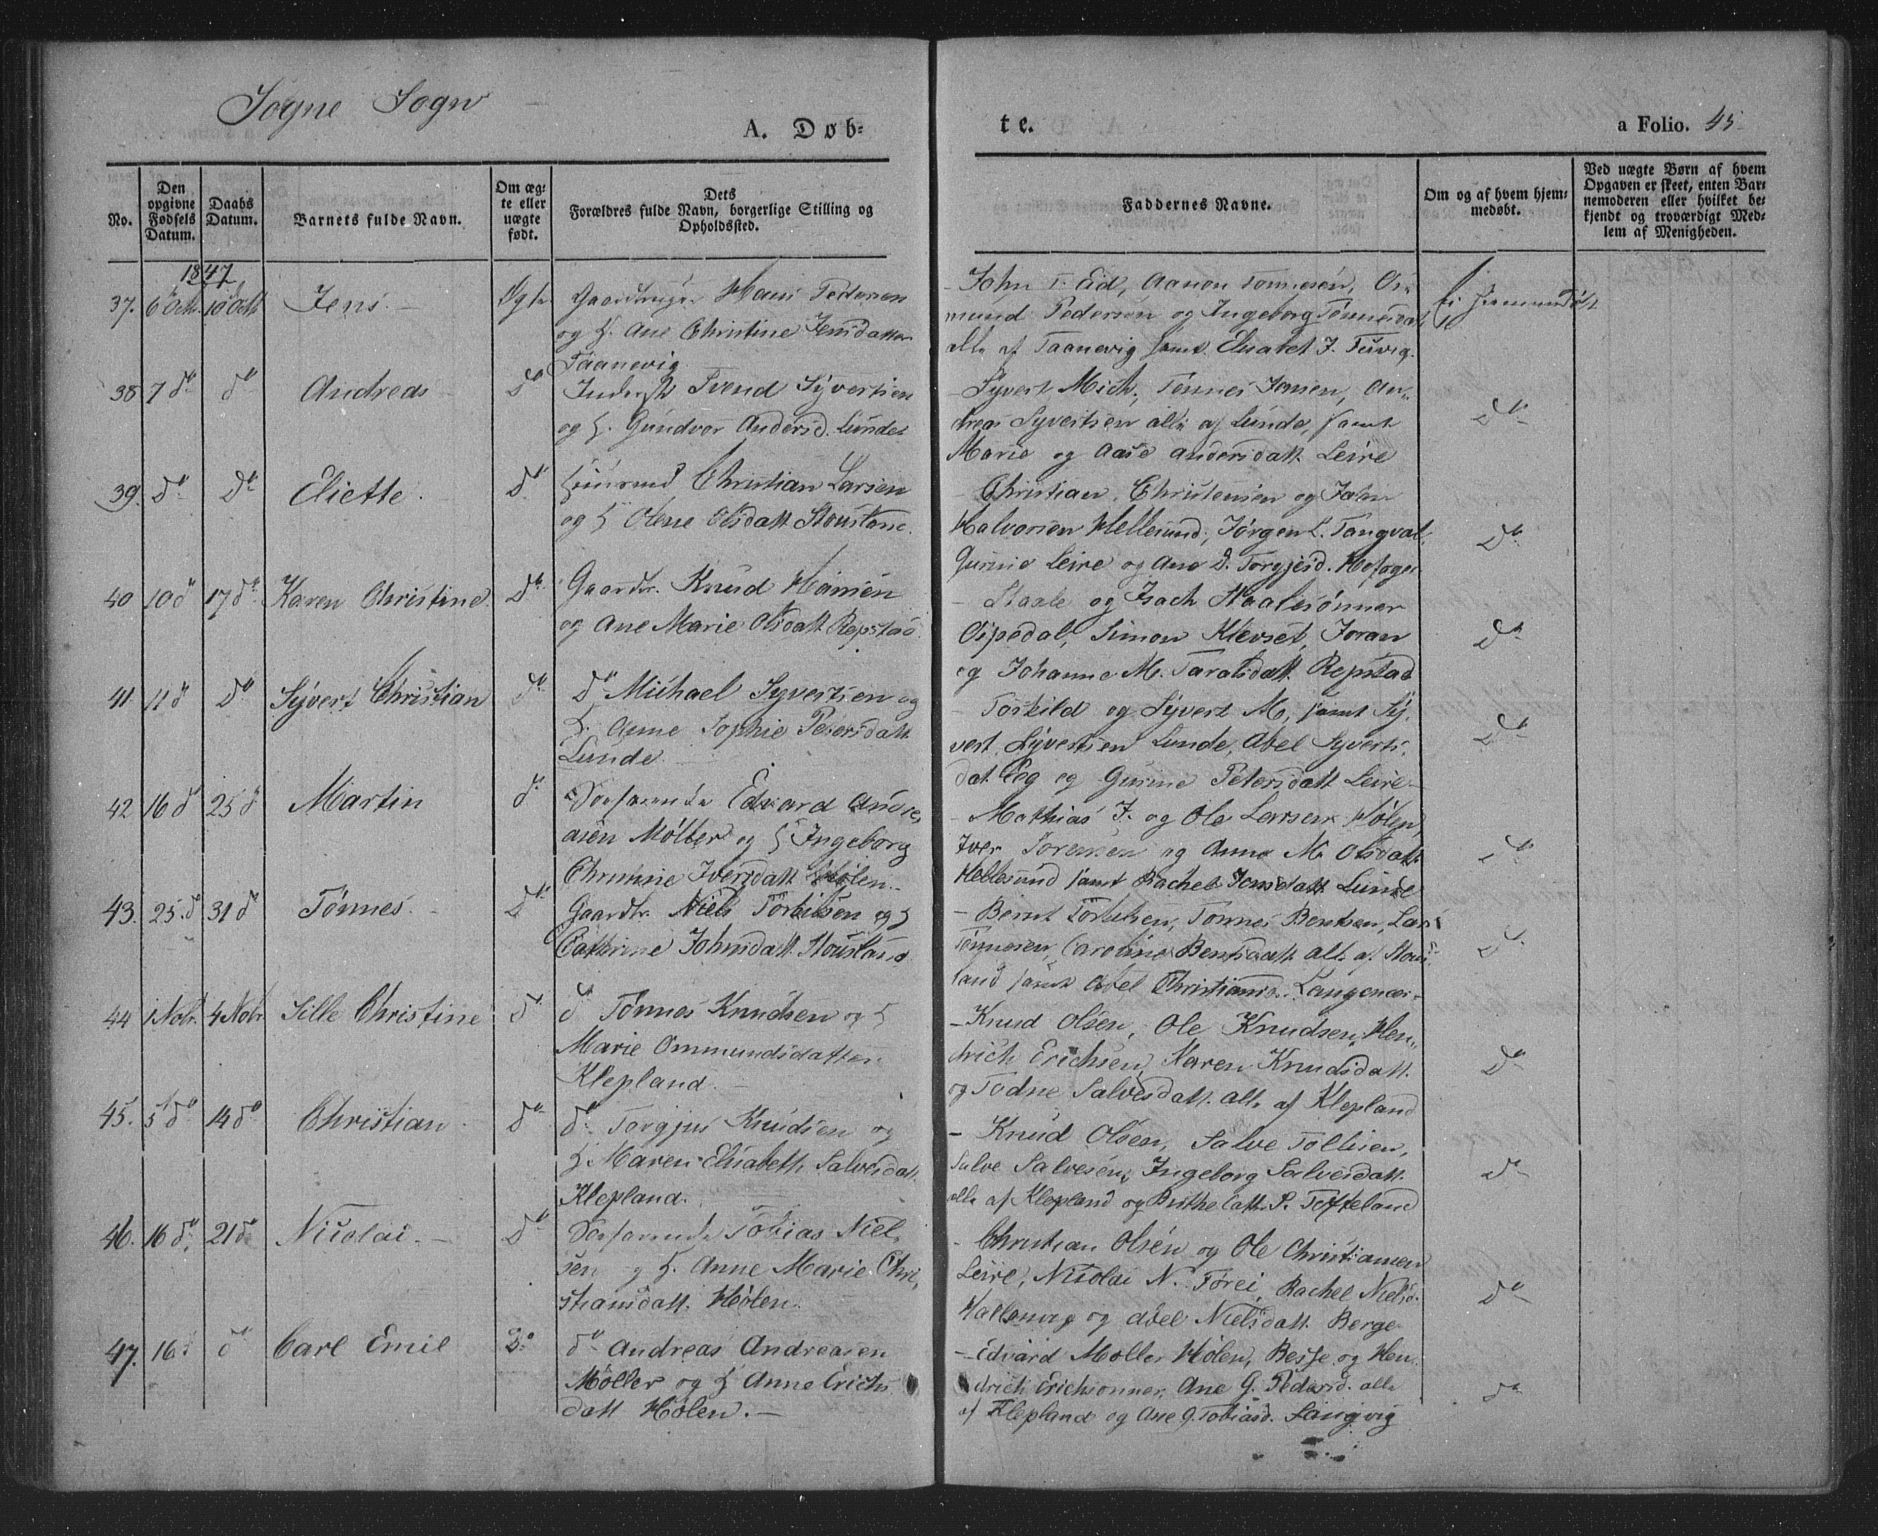 Sogne Sogn
A. Døb-
te.
a Folio. 45
No.
Den opgivne Fødsels Datum.
Daabs Datum.
Barnets fulde Navn.
Om ægte eller uægte født.
Dets
Forældres fulde Navn, borgerlige Stilling og
Opholdssted.
Faddernes Navne.
Om og af hvem hjem-
medøbt.
Ved uægte Børn af hvem
Opgaven er skeet, enten Bar-
nemoderen eller hvilket be-
kjendt og troværdigt Med-
lem af Menigheden.
1847
37. 6 Octb. 10 Octb. Jens. Ægte
Hans Pedersen
og H. Ane Christine Jensdatter
Taanevig
John T. Eid, Aanon Tønnesen, Os-
mund Pedersen og Ingeborg Tønnesdat.
alle af Taanevig samt Elisabet J. Tuvig.
Ei hjemmedøbt
38 7 do do Andreas do
Inderst Svend Syvertsen
og H. Gundvor Andersd. Lunde
Syvert Mich., Tønnes Jensen, An-
dreas Syvertsen alle af Lunde, samt
Marie og Aase Andersdatt. Leire
do
39. do do Eliette. do
Christian Larsen
og H Olene Olsdatt. Stousland.
Christian Christensen og John
Halvorsen Hellesund, Jørgen L. Tangval,
Gurine Leire og Ane D. Torgjersd.
do
40 10 d 17 do Karen Christine. do
Gaardbr. Knud Hansen
og Ane Marie Olsdatt. Repstad
Staale og Isach Staalesønner
Ospedal, Simon Klevset, Joran
og Johanne M. Taraldsdatt. Repstad
do
41. 11 d do Syvert Christian do
do Michael Syvertsen og
H. Anne Sophie Petersdatt.
Lunde.
Torkild og Syvert M., samt Sy-
vert Syvertsen Lunde, Abel Syverts-
dat. Eeg og Gurine Petersdatt. Leire
do
42 16 d 25 d Martin do
Søefarende Edvard Andre-
asen Møller og H Ingeborg
Christine Iversdatt. Hølen.
Mathias J. og Ole Larsen Hølen,
Iver Sørensen og Anne M. Olsdatt.
Hellesund samt Rachel Jensdatt. Lunde
do
43. 25. d 31 d Tønnes. do
Gaardbr. Niels Torkilsen og H
Cathrine Johnsdatt. Stousland.
Bernt Torkilsen, Tønnes Bentsen, Lars
Tønnesen, Caroline Bentsdatt. alle af Stous-
land samt Abel Christiansd. Langenes
do
44 1 Nobr. 4 Nobr. Sille Christine do
do Tønnes Knudsen og H
Marie Ommundsdatter
Klepland.
Knud Olsen, Ole Knudsen, Hen-
drich Erichsen, Karen Knudsdatt.
og Todne Salvesdatt. alle af Klepland
do
45. 5 do 14 do Christian. do
do Torgjus Knudsen og
H Maren Elisabeth Salvesdatt.
Klepland.
Knud Olsen, Salve Tollisen,
Salve Salvesen, Ingeborg Salvesdatt.
alle af Klepland og Brithe Cath. P. Tofteland
do
46. 16 do. 21 do Nicolai. do
Søefarende Tobias Niel-
sen og H. Anne Marie Chri-
stiansdatt. Hølen.
Christian Olsen og Ole Christiansen
Leire, Nicolai N. Torei, Rachel Nielsd.
og Abel Nielsdatt. Berge
do
47. 16. d do Carl Emil do
do Andreas Andreasen
Møller og H Anne Erichs-
datt Hølen.
Edvard Møller Hølen, Besse og Hen-
drich Erichsønner, Ane G. Pedersd. alle
af Klepland og Ane G. Tobiasd. Langvig
do